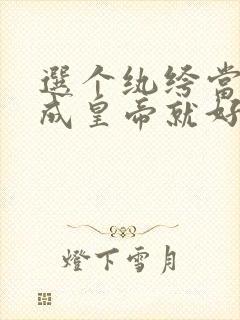 選个纨绔當
成皇帝就好
燈下雪月